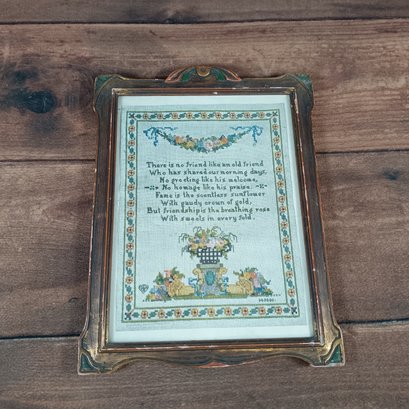 There is no friend like an old friend
Who has shared our morning days,
No greeting like his welcome,
No homage like his praise.
Fame is the scentless sunflower
With gaudy crown of gold,
But friendship is the breathing rose
With sweets in every fold.